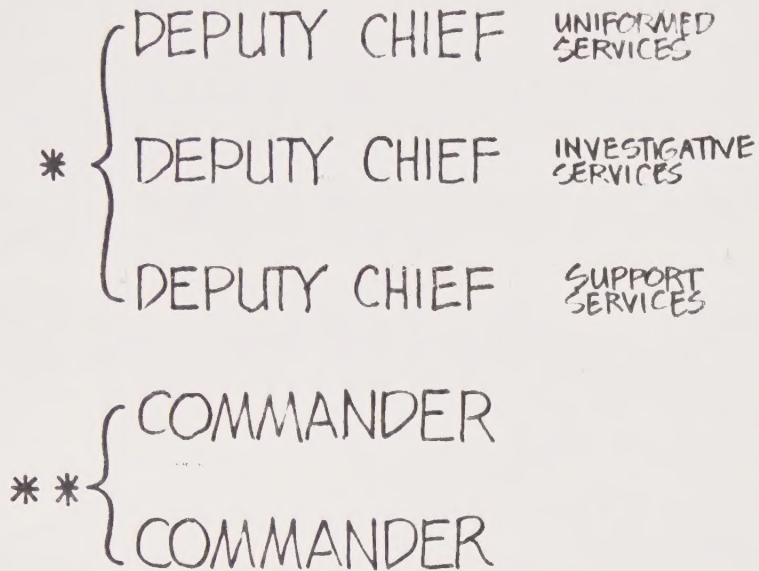 DEPUTY CHIEF UNIFORMED
SERVICES
* DEPUTY CHIEF INVESTIGATIVE
SERVICES
DEPUTY CHIEF SUPPORT
SERVICES
COMMANDER
**
COMMANDER